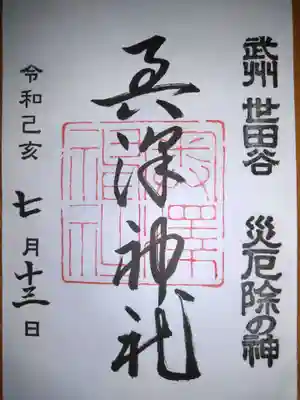 武州 世田谷 災厄除の神
奥澤神社
令和己亥 七月十三日